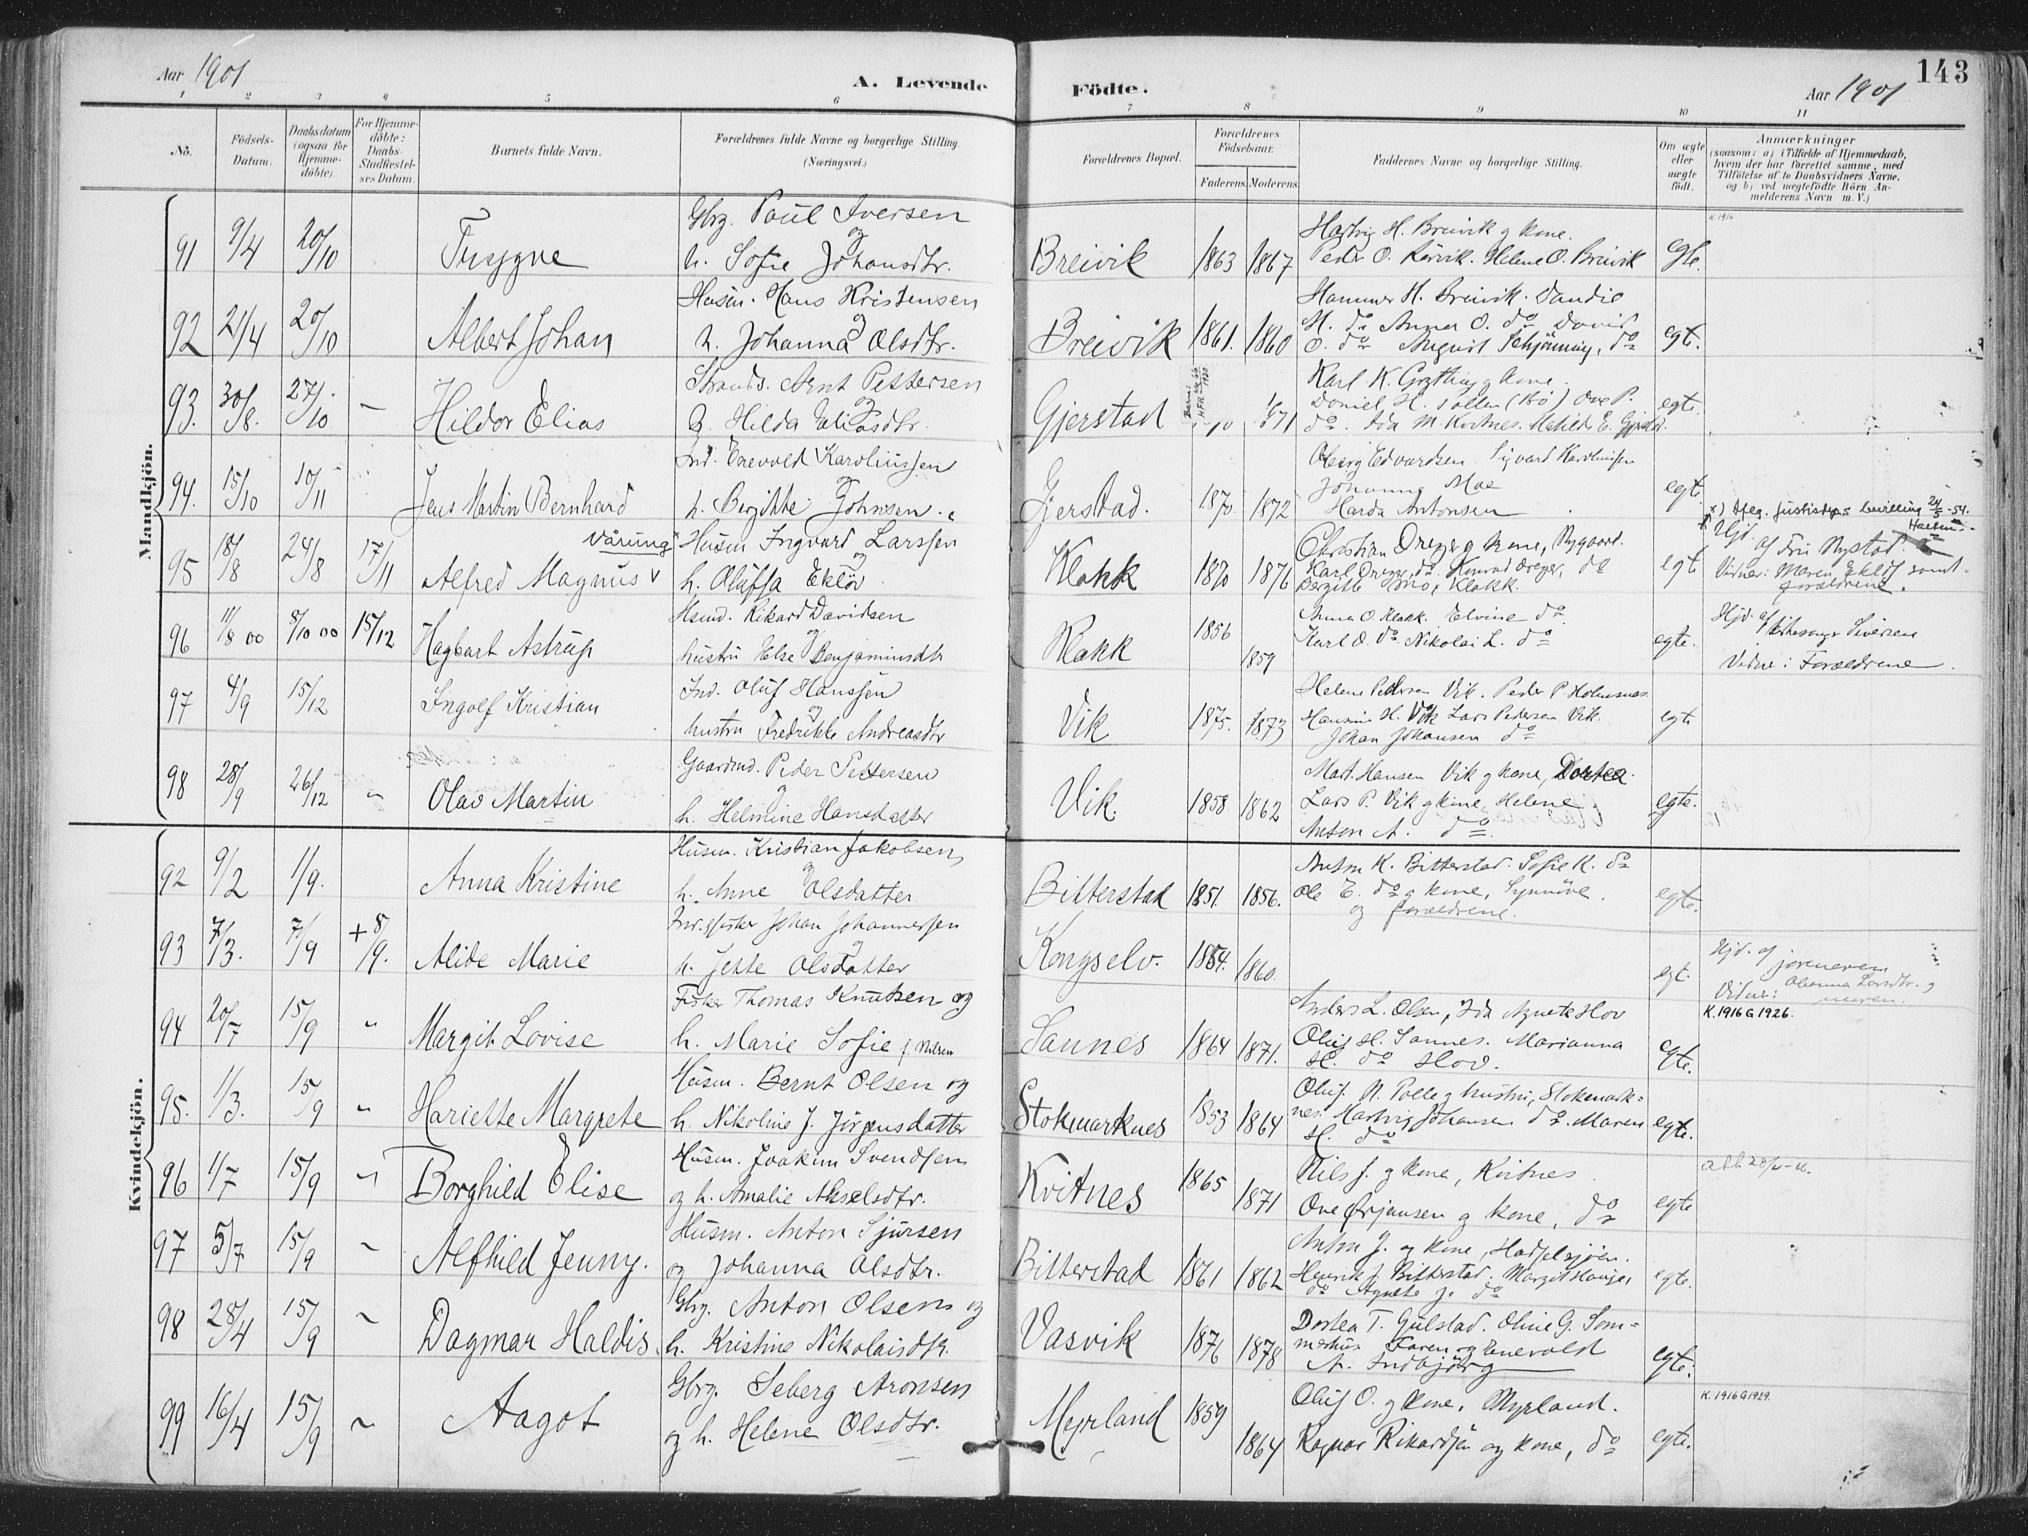 Aar 1901
A. Levende
Födte.
Aar 1901
143
1 2 3 4 5 6 7 8 9 10 11
No.
Födsels-
Datum.
Daabsdatum
(ogsaa for
Hjemme-
döbte).
For Hjemme-
döbte:
Daabs-
Stadfæstel-
ses Datum.
Barnets fulde Navn.
Forældrenes fulde Navne og borgerlige Stilling.
(Næringsvei.)
Forældrenes Bopæl.
Forældrenes
Födselsaar.
Faderens. Moderens.
Faddernes Navne og borgerlige Stilling.
Om ægte
eller
uægte
födt.
Anmærkninger
(saasom: a) i Tilfælde af Hjemmedaab,
hvem der har forrettet samme, med
Tilföielse af to Daabsvidners Navne,
og b) ved uægtefödte Börn An-
melderens Navn m. V.)
Mandkjön.
91 9/4 20/10 Trygve
Gbrg. Paul Iversen
og
h. Sofie Johansdtr.
Breivik 1863 1867
Hartvig H. Breivik og kone.
Peder O. Rørvik. Helene O. Breivik
egte.
K.1916
92 21/4 20/10 Albert Johan
Husm. Hans Kristensen
og
h. Johanna Olsdtr.
Breivik 1861. 1860
Hammer H. Breivik.
H. do Anna O. do David
O. do August Schjønning, do
egt.
93. 30/8. 27/10 – Hildor Elias
Strands. Arnt Pettersen
og
h. Hilda Eliasdtr.
Gjerstad
Karl K. Grytting og kone.
Daniel H. (Bø) Ove P.
do. Ida M. Kvitnes. Matilde E. Gjerstad.
egte.
94. 15/10 10/11 Jens Martin Bernhard
Ind. Enevold Karolinssen
og
h. Bergitte Johnsen.
Gjerstad. 1870. 1872
Edvardsen Sigvard Karolinssen
Johanna Moe
Harda Antonsen
egte
95 18/8 24/8 17/11 Alfred Magnus Våring
Husm Ingvard Larssen
og
h. Oluffa Ekløv
Klakk 1870 1876
Christian Dreyer og kone, Nygaard.
Karl Dreyer, do. Konrad Dreyer, do
Bergitte Klakk.
egte
x) Ifleg. justisdep.s bevilling 24/5-54.
Hjd.
af Fru Nystad.
Vidner: Maren Ekløf samt
forældrene.
96 11/8 00 8/10 00 15/12 Hagbart Astrup
Husmd. Rikard Davidsen
og
hustru Else Benjaminsdtr
Klakk 1856 1859
Anna O. Klakk. Elvine do.
Karl O. do Nikolai L. do
egte.
Hjd. af
Siversen
Vidne: Forældrene
97 4/9 15/12 Ingolf Kristian
Ind. Oluf Hanssen
og
hustru Fredrikke Andreasdtr
Vik 1875. 1873
Helene Pedersen Vik. Peder P. Holmsnes.
Hansine H. Vik Lars Pedersen Vik.
Johan Johansen do
egte
98 28/9 26/12 " Olav Martin
Gaardmd. Peder Pettersen
og
h. Helmine Hansdatter
Vik. 1858 1862
Mart. Hansen Vik og kone, Dortea.
Lars P. Vik og kone, Helene
Anton A. do.
egte.
Kvindekjön.
92 9/2 1/9. Anna Kristine
Husm. Kristian Jakobsen,
og
h. Anne Olsdatter
Bitterstad 1851. 1856.
Anton K. Bitterstad. Sofie K. do
Ole E. do og kone, Synnöve.
og forældrene.
egte.
93 7/3. 7/9 + 8/9. Alide Marie
Indr. fisker Johan Johannessen
og
h. Jette Olsdatter
Kongselv. 1854. 1860.
egt.
Hjd. af
jormoren
Vidner: Johanna Larsdtr. og
moren.
94 20/7 15/9 " Margit Lovise
Fisker Thomas Knutsen og
h. Marie Sofie f. Nilsen
Sannes 1864 1871.
Anders L. Olsen, Ida Agnete Hov
Oluf H. Sannes. Marianna
H. do Hov.
egte.
K.1916 G 1926.
95. 1/3. 15/9 " Hariette Margrete
Husm. Bernt Olsen og
h. Nikoline J. Jörgensdatter
Stokmarknes 1853 1864
Oluf N. Polle og hustru, Stokmark-
nes. Hartvig Johansen do. Maren
H. do
egte.
96 1/7 15/9 " Borghild Elise
Husm. Joakim Svendsen
og h. Amalie Akselsdtr.
Kvitnes 1865 1871
Nils J. og kone, Kvitnes
Ove Ørjansen og kone, do
egte
97 5/7 15/9 " Alfhild Jenny.
Husm. Anton Sjursen
og Johanna Olsdtr.
Bitterstad 1861 1862
Anton J. og kone, Hadselsjøen.
Henrik J. Bitterstad. Margit Hauge,
do Agnete J. do
egte.
98 28/4 15/9 " Dagmar Haldis.
Gbrg. Anton Olsen og
h. Kristine Nikolaisdtr.
Vasvik 1876 1878
Dortea T. Gulstad. Oline G. Som-
merhus Faren og Enevold
A. Indbjörg
egte.
99 16/4 15/9 " Aagot
Gbrg. Seberg Aronsen
og h. Helene Olsdtr.
Myrland 1859 1864
Oluf O. og kone, Myrland.
Ragnar Rikardsen og kone, do
egte.
K.1916 G 1929.